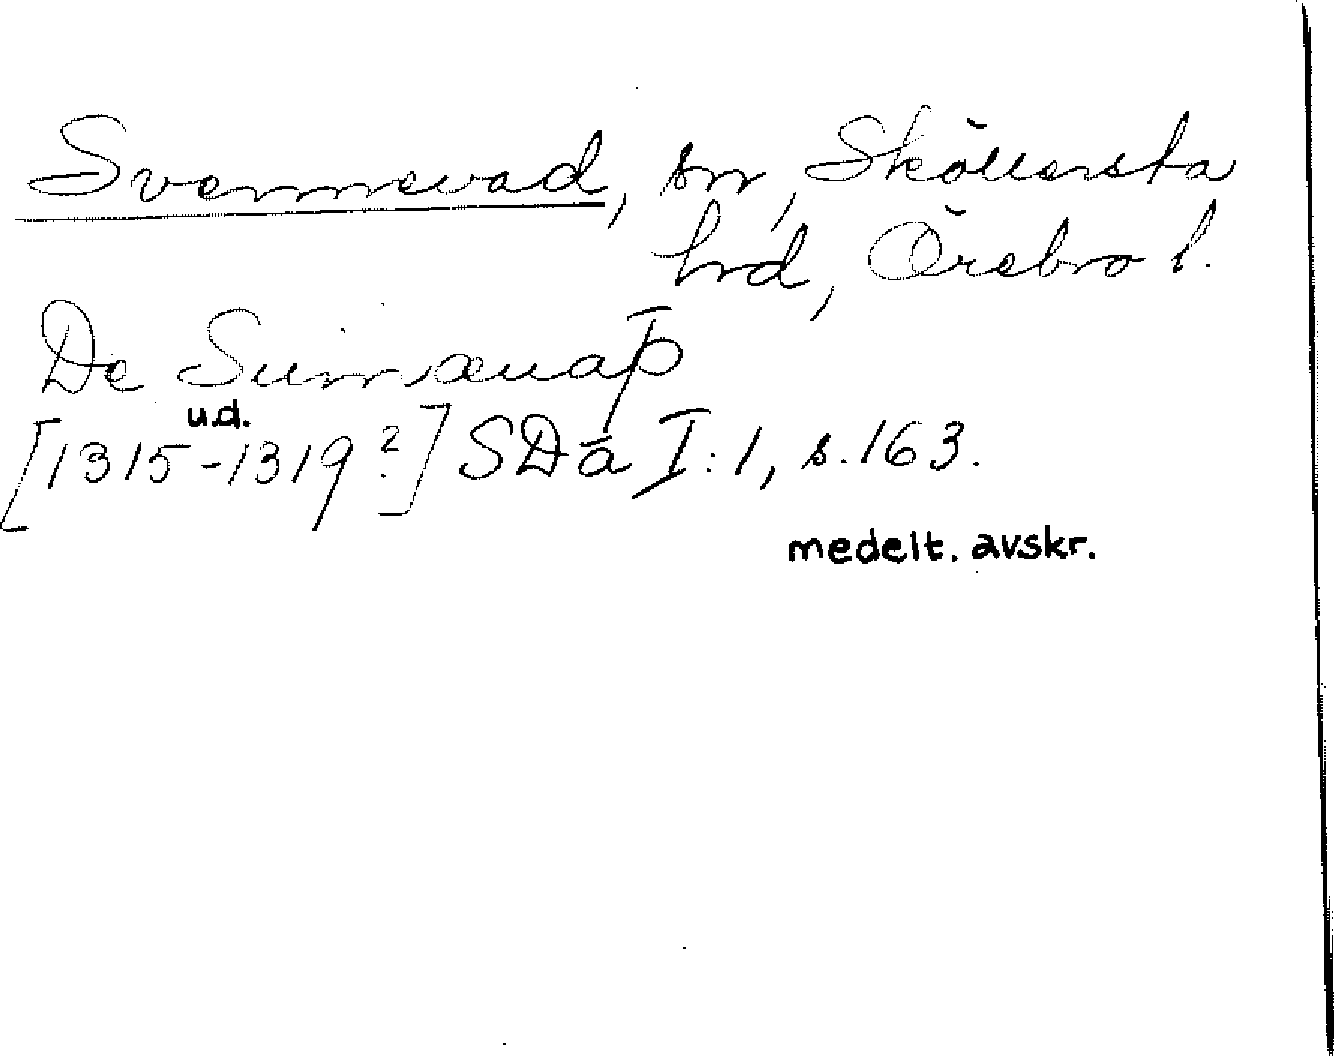 Svennevad, sn, Sköllersta
hrd, Örebro l.
De Suinæuaþ
u.d.
[1315-1319?] SDä I:1, s.163.
medelt. avskr.